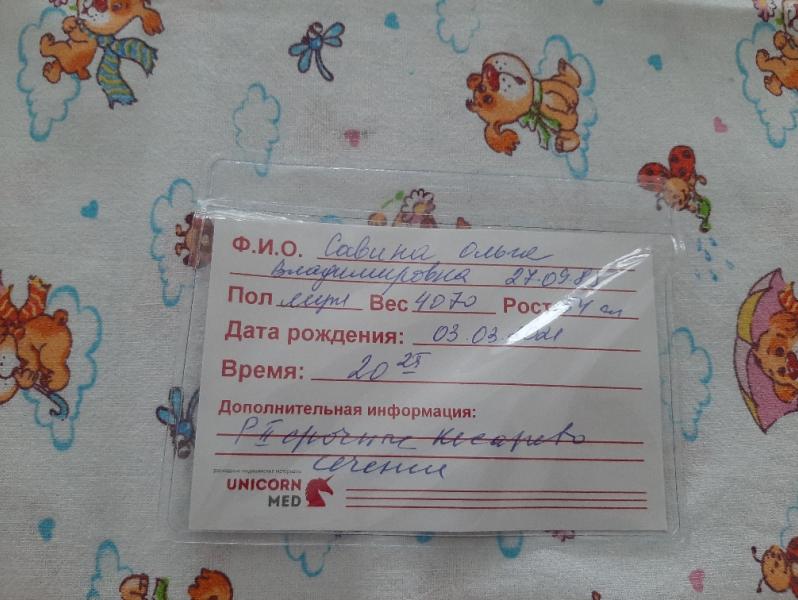 Ф.И.О. Савина Ольга
Владимировна 27.09.85
Пол муж Вес 4070 Рост 54 см
Дата рождения: 03.03.2021
Время: 20 25
Дополнительная информация:
Р II срочные Кесарево
сечение
расходные медицинские материалы
UNICORN
MED